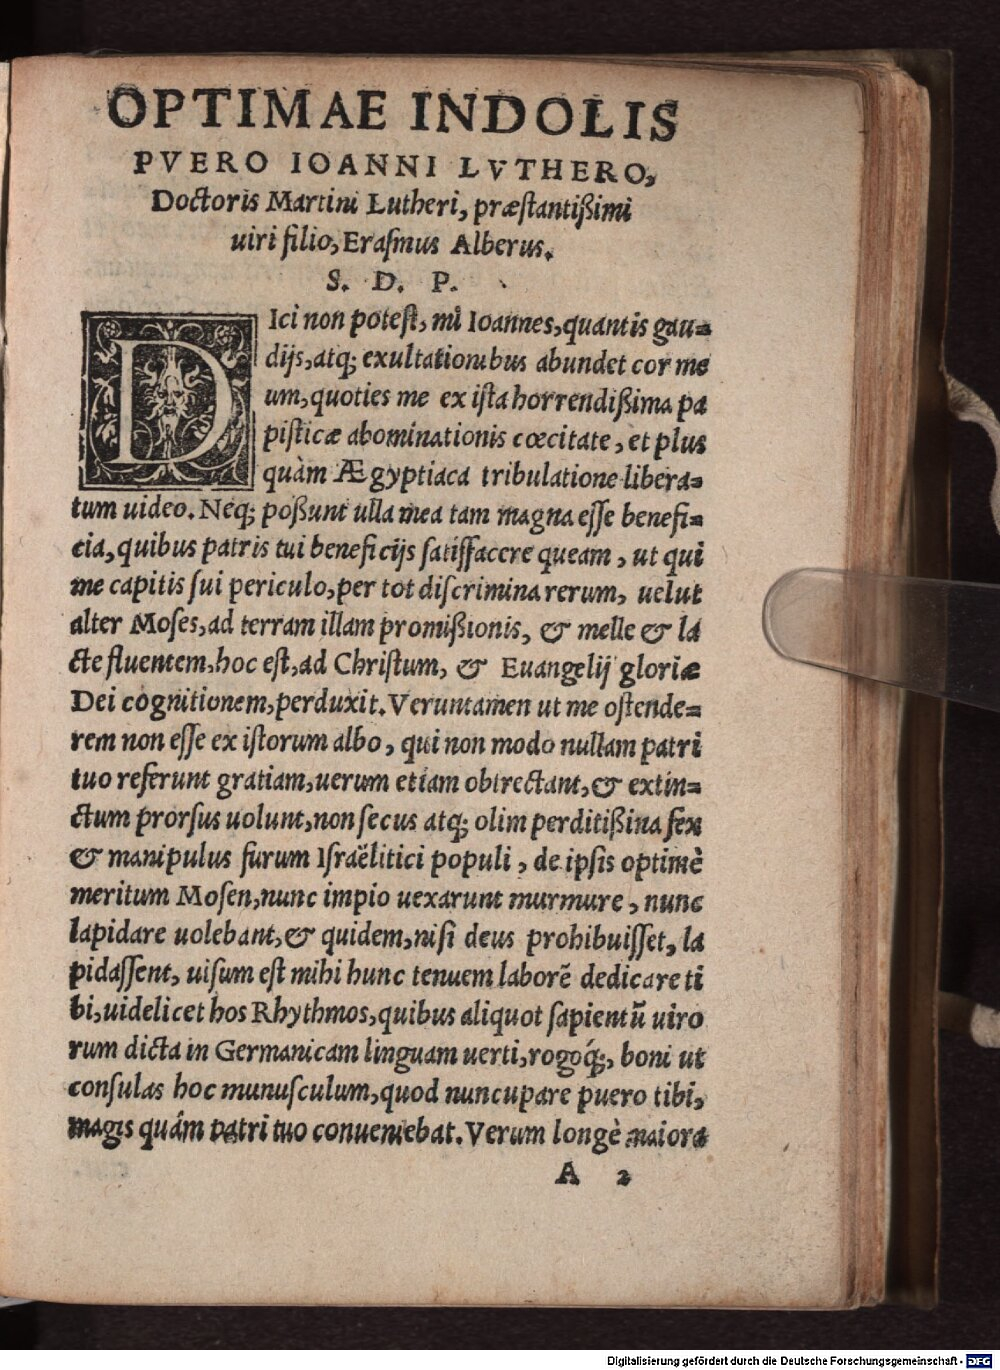 OPTIMAE INDOLIS
PVERO IOANNI LVTHERO,
Doctoris Martini Lutheri, præſtantißimi
uiri filio, Eraſmus Alberus.
S. D. P.
DIci non poteſt, mi Ioannes, quantis gau=
dijs, atq; exultationibus abundet cor me
um, quoties me ex iſta horrendißima pa
piſticæ abominationis cœcitate, et plus
quàm Ægyptiaca tribulatione libera=
tum uideo. Neq; poßunt ulla mea tam magna eſſe benefi=
cia, quibus patris tui beneficijs ſatiſfacere queam, ut qui
me capitis ſui periculo, per tot diſcrimina rerum, uelut
alter Moſes, ad terram illam promißionis, & melle & la
cte fluentem, hoc eſt, ad Chriſtum, & Euangelij gloriæ
Dei cognitionem, perduxit. Veruntamen ut me oſtende=
rem non eſſe ex iſtorum albo, qui non modo nullam patri
tuo referunt gratiam, uerum etiam obtrectant, & extin=
ctum prorſus uolunt, non ſecus atq; olim perditißina fex
& manipulus furum Iſraëlitici populi, de ipſis optimè
meritum Moſen, nunc impio uexarunt murmure, nunc
lapidare uolebant, & quidem, niſi deus prohibuiſſet, la
pidaſſent, uiſum eſt mihi hunc tenuem laborē dedicare ti
bi, uidelicet hos Rhythmos, quibus aliquot ſapientũ uiro
rum dicta in Germanicam linguam uerti, rogoq́;, boni ut
conſulas hoc munuſculum, quod nuncupare puero tibi,
magis quám patri tuo conueniebat. Verum longè maiora
A 2
Digitalisierung gefördert durch die Deutsche Forschungsgemeinschaft - DFG